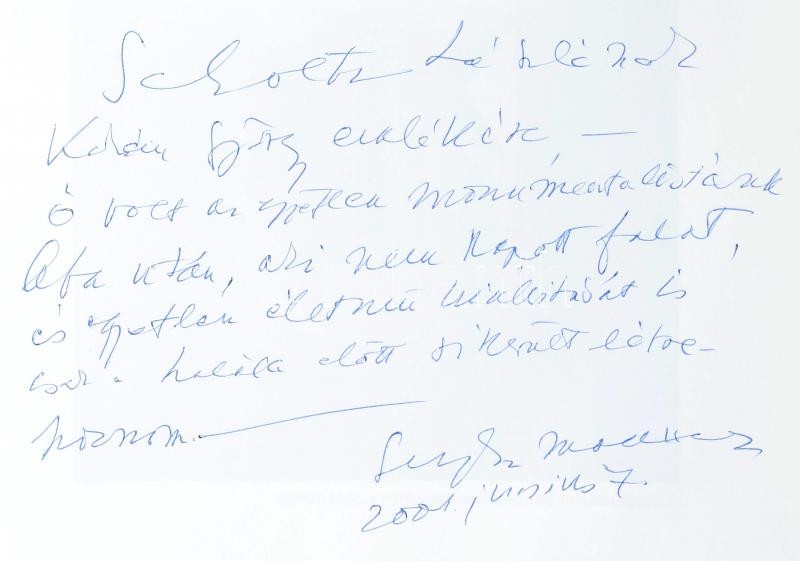 Scholtz Lászlónak
Kádár György emlékére —
ő volt az egyetlen monumentalistánk
Aba után, aki nem kapott falat,
és egyetlen életmű kiállítását is
csak halála előtt sikerült létre-
hoznom.
2001. június 7.